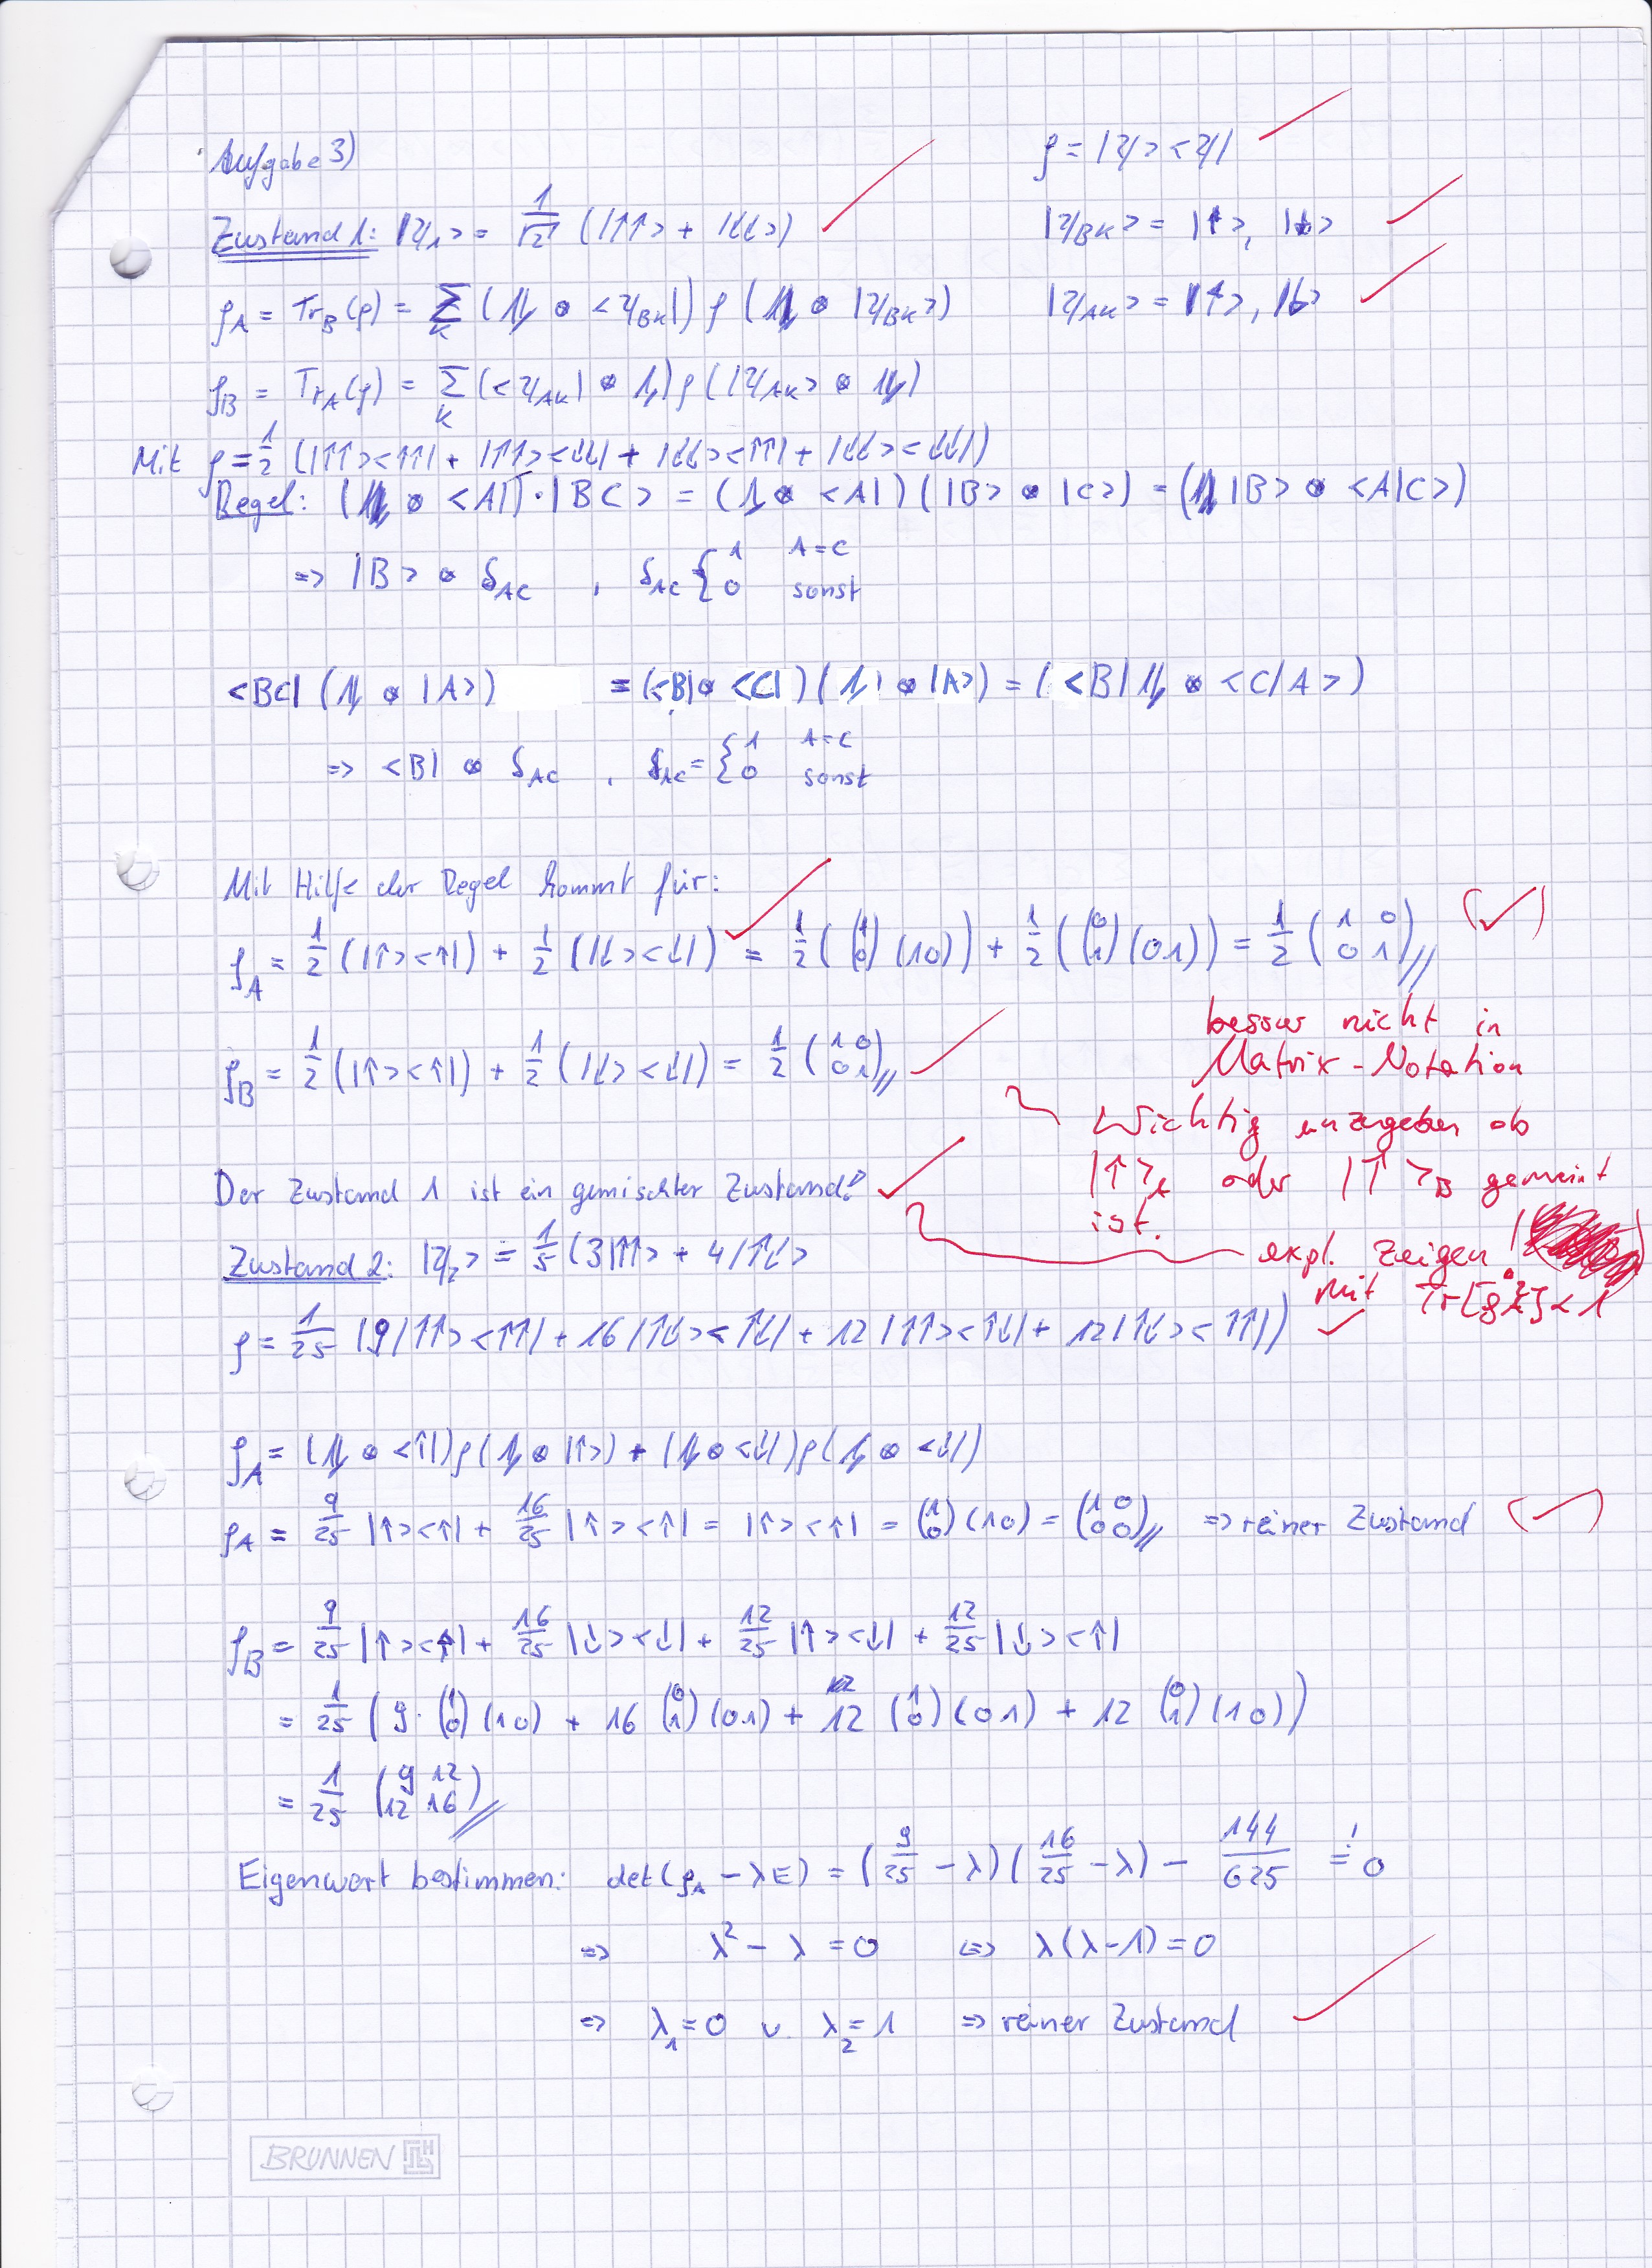 Aufgabe 3)
ρ = |ψ><ψ|
Zustand 1: |ψ₁> = 1/√2 (|↑↑> + |↓↓>)
|ψ_Bk> = |↑>, |↓>
ρ_A = Tr_B(ρ) = Σ_k (𝟙 ⊗ <ψ_Bk|) ρ (𝟙 ⊗ |ψ_Bk>)
|ψ_Ak> = |↑>, |↓>
ρ_B = Tr_A(ρ) = Σ_k (<ψ_Ak| ⊗ 𝟙) ρ (|ψ_Ak> ⊗ 𝟙)
Mit ρ = 1/2 (|↑↑><↑↑| + |↑↑><↓↓| + |↓↓><↑↑| + |↓↓><↓↓|)
Regel: (𝟙 ⊗ <A|) · |BC> = (𝟙 ⊗ <A|) (|B> ⊗ |C>) = (𝟙 |B> ⊗ <A|C>)
=> |B> ⊗ δ_AC , δ_AC { 1 A=C
0 sonst
<BC| (𝟙 ⊗ |A>) = (<B| ⊗ <C|) (𝟙 ⊗ |A>) = (<B| 𝟙 ⊗ <C|A>)
=> <B| ⊗ δ_AC , δ_AC = { 1 A=C
0 sonst
Mit Hilfe der Regel kommt für:
ρ_A = 1/2 (|↑><↑|) + 1/2 (|↓><↓|) = 1/2 ((1 0)ᵀ (1 0)) + 1/2 ((0 1)ᵀ (0 1)) = 1/2 (1 0; 0 1) (✓)
besser nicht in
Matrix-Notation
ρ_B = 1/2 (|↑><↑|) + 1/2 (|↓><↓|) = 1/2 (1 0; 0 1)
Wichtig anzugeben ob
|↑>_A oder |↑>_B gemeint
ist.
Der Zustand 1 ist ein gemischter Zustand.
expl. zeigen!
mit Tr[ρ̂²] < 1
Zustand 2: |ψ₂> = 1/5 (3|↑↑> + 4|↑↓>
ρ = 1/25 (9|↑↑><↑↑| + 16|↑↓><↑↓| + 12|↑↑><↑↓| + 12|↑↓><↑↑|)
ρ_A = (𝟙 ⊗ <↑|) ρ (𝟙 ⊗ |↑>) + (𝟙 ⊗ <↓|) ρ (𝟙 ⊗ <↓|)
ρ_A = 9/25 |↑><↑| + 16/25 |↑><↑| = |↑><↑| = (1 0)ᵀ (1 0) = (1 0; 0 0) => reiner Zustand (✓)
ρ_B = 9/25 |↑><↑| + 16/25 |↓><↓| + 12/25 |↑><↓| + 12/25 |↓><↑|
= 1/25 (9 · (1 0)ᵀ (1 0) + 16 (0 1)ᵀ (0 1) + 12 (1 0)ᵀ (0 1) + 12 (0 1)ᵀ (1 0))
= 1/25 (9 12; 12 16)
Eigenwert bestimmen: det(ρ_A - λE) = (9/25 - λ)(16/25 - λ) - 144/625 =! 0
=> λ² - λ = 0 <=> λ(λ-1) = 0
=> λ₁ = 0 ∨ λ₂ = 1 => reiner Zustand
BRUNNEN